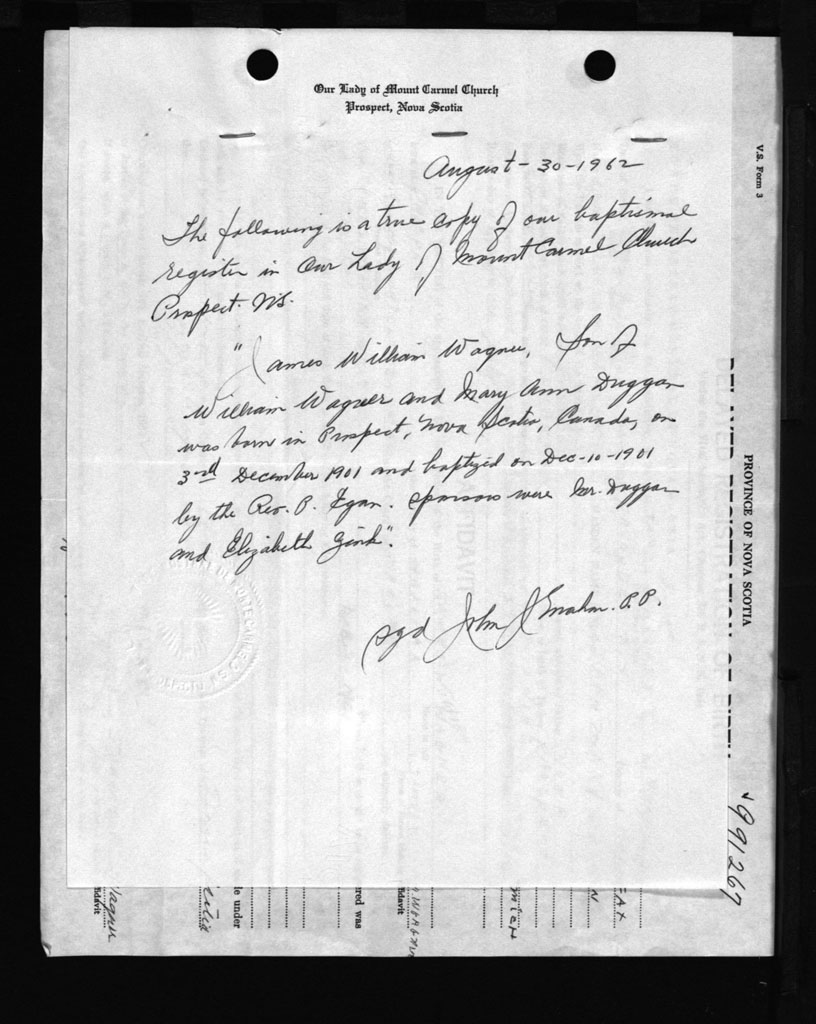 Our Lady of Mount Carmel Church
Prospect, Nova Scotia
August-30-1962
The following is a true copy of our baptismal
register in Our Lady of Mount Carmel Church
Prospect. N.S.
"James William Wagner, Son of
William Wagner and Mary Ann Duggan
was born in Prospect, Nova Scotia, Canada, on
3rd December 1901 and baptized on Dec-10-1901
by the Rev. P. Egan. Sponsors were Duggan
and Elizabeth
sgd John J P.P.
V.S. Form 3
PROVINCE OF NOVA SCOTIA
DELAYED REGISTRATION OF BIRTH
991267
le under
red was
fidavit